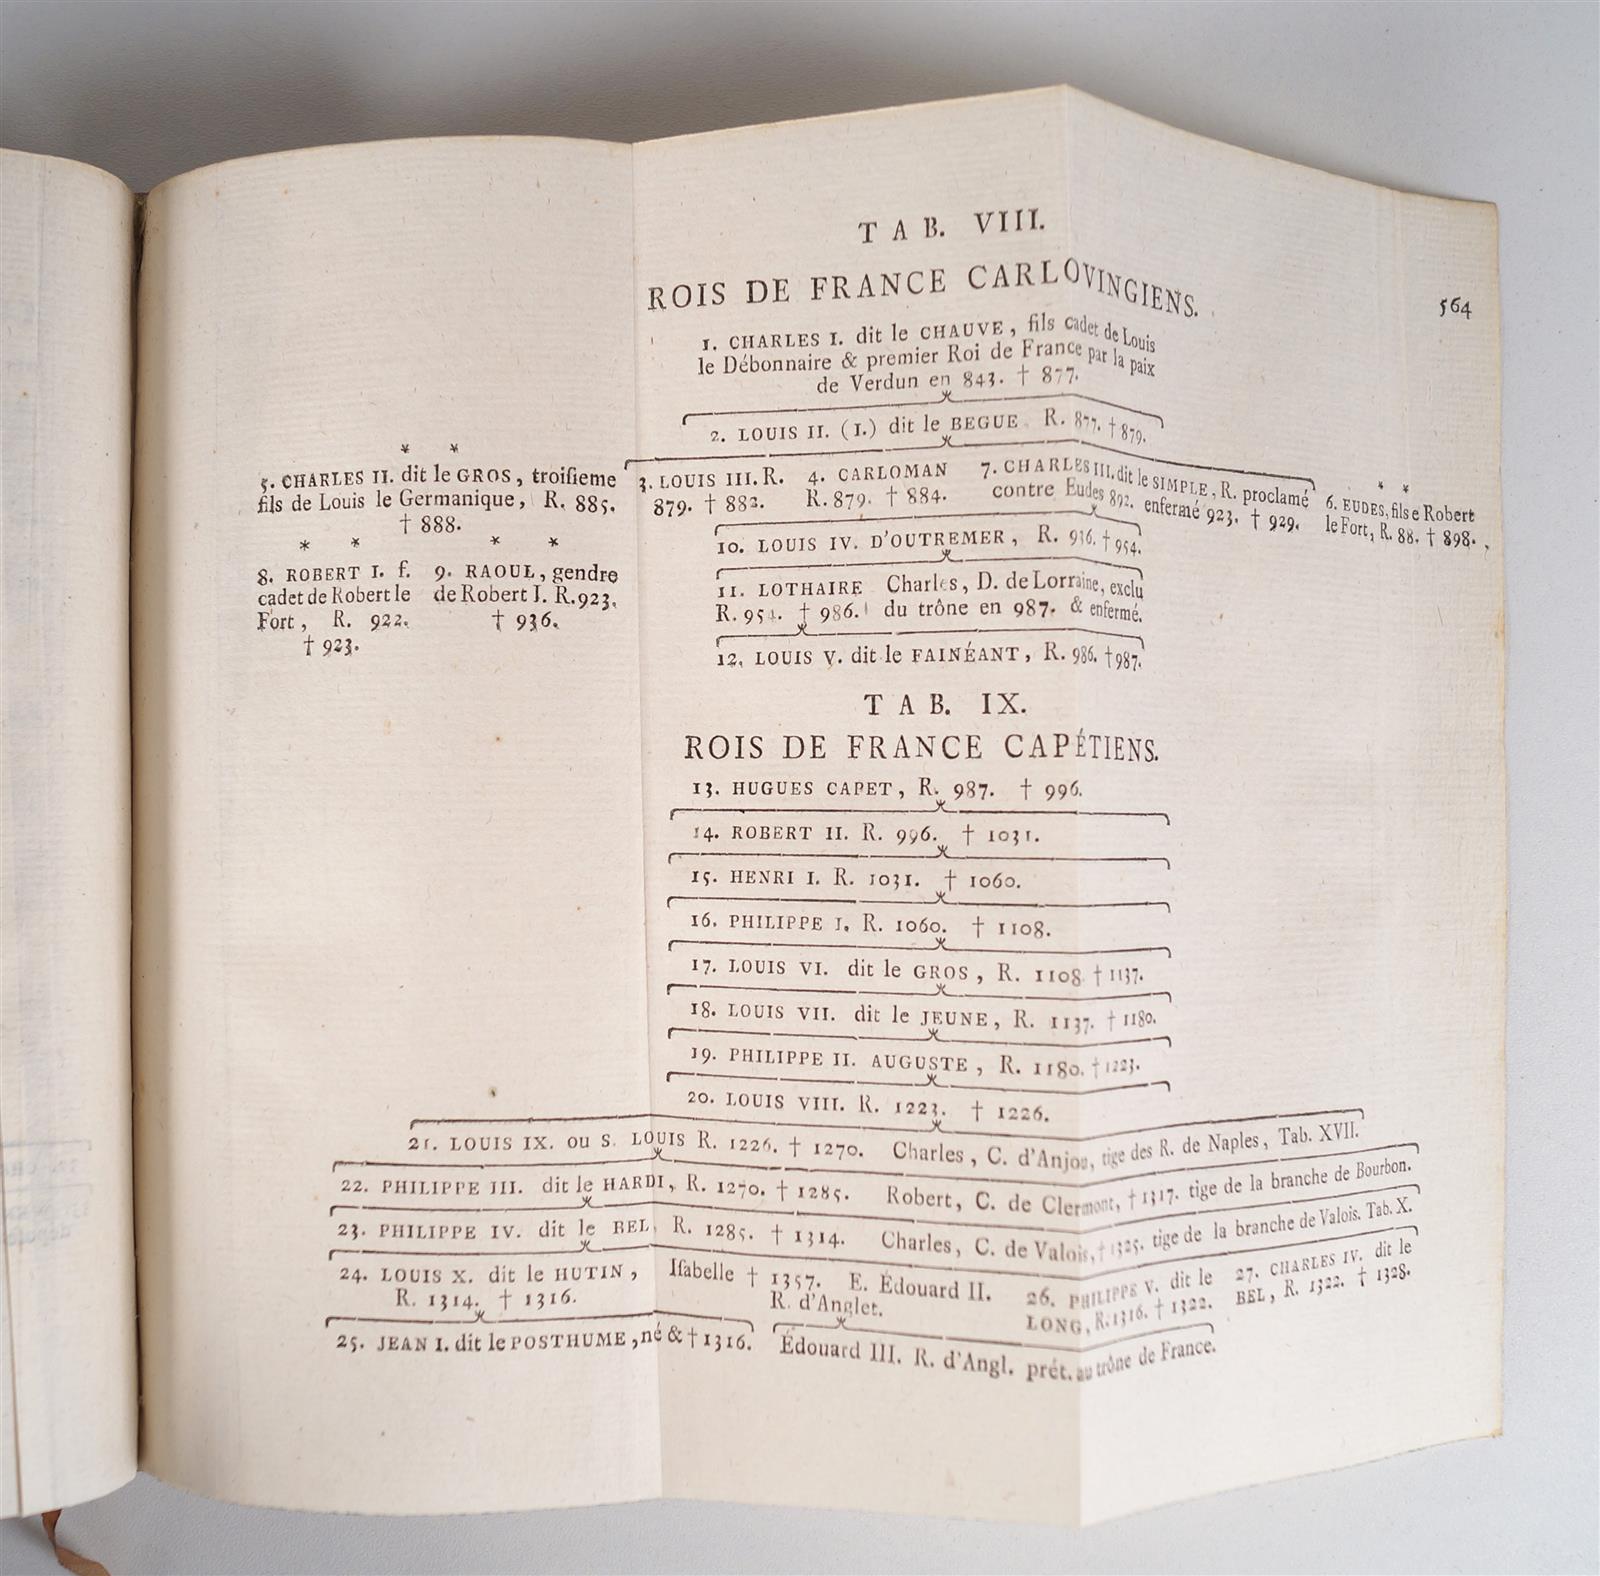 564
TAB. VIII.
ROIS DE FRANCE CARLOVINGIENS.
1. CHARLES I. dit le CHAUVE, fils cadet de Louis
le Débonnaire & premier Roi de France par la paix
de Verdun en 843. † 877.
2. LOUIS II. (I.) dit le BEGUE R. 877. † 879.
* *
5. CHARLES II. dit le GROS, troisieme
fils de Louis le Germanique, R. 885.
† 888.
3. LOUIS III. R.
879. † 882.
4. CARLOMAN
R. 879. † 884.
7. CHARLES III. dit le SIMPLE, R. proclamé
contre Eudes 892. enfermé 923. † 929.
* *
6. EUDES, fils e Robert
le Fort, R. 88. † 898.
* *
8. ROBERT I. f.
cadet de Robert le
Fort, R. 922.
† 923.
* *
9. RAOUL, gendre
de Robert I. R. 923.
† 936.
10. LOUIS IV. D'OUTREMER, R. 936. † 954.
11. LOTHAIRE
R. 954. † 986.
Charles, D. de Lorraine, exclu
du trône en 987. & enfermé.
12. LOUIS V. dit le FAINÉANT, R. 986. † 987.
TAB. IX.
ROIS DE FRANCE CAPÉTIENS.
13. HUGUES CAPET, R. 987. † 996.
14. ROBERT II. R. 996. † 1031.
15. HENRI I. R. 1031. † 1060.
16. PHILIPPE I. R. 1060. † 1108.
17. LOUIS VI. dit le GROS, R. 1108 † 1137.
18. LOUIS VII. dit le JEUNE, R. 1137. † 1180.
19. PHILIPPE II. AUGUSTE, R. 1180. † 1223.
20. LOUIS VIII. R. 1223. † 1226.
21. LOUIS IX. ou S. LOUIS R. 1226. † 1270. Charles, C. d'Anjou, tige des R. de Naples, Tab. XVII.
22. PHILIPPE III. dit le HARDI, R. 1270. † 1285. Robert, C. de Clermont, † 1317. tige de la branche de Bourbon.
23. PHILIPPE IV. dit le BEL, R. 1285. † 1314. Charles, C. de Valois, † 1325. tige de la branche de Valois. Tab. X.
24. LOUIS X. dit le HUTIN,
R. 1314. † 1316.
Isabelle † 1357. E. Édouard II.
R. d'Anglet.
26. PHILIPPE V. dit le
LONG, R. 1316. † 1322.
27. CHARLES IV. dit le
BEL, R. 1322. † 1328.
25. JEAN I. dit le POSTHUME, né & † 1316.
Édouard III. R. d'Angl. prét. au trône de France.